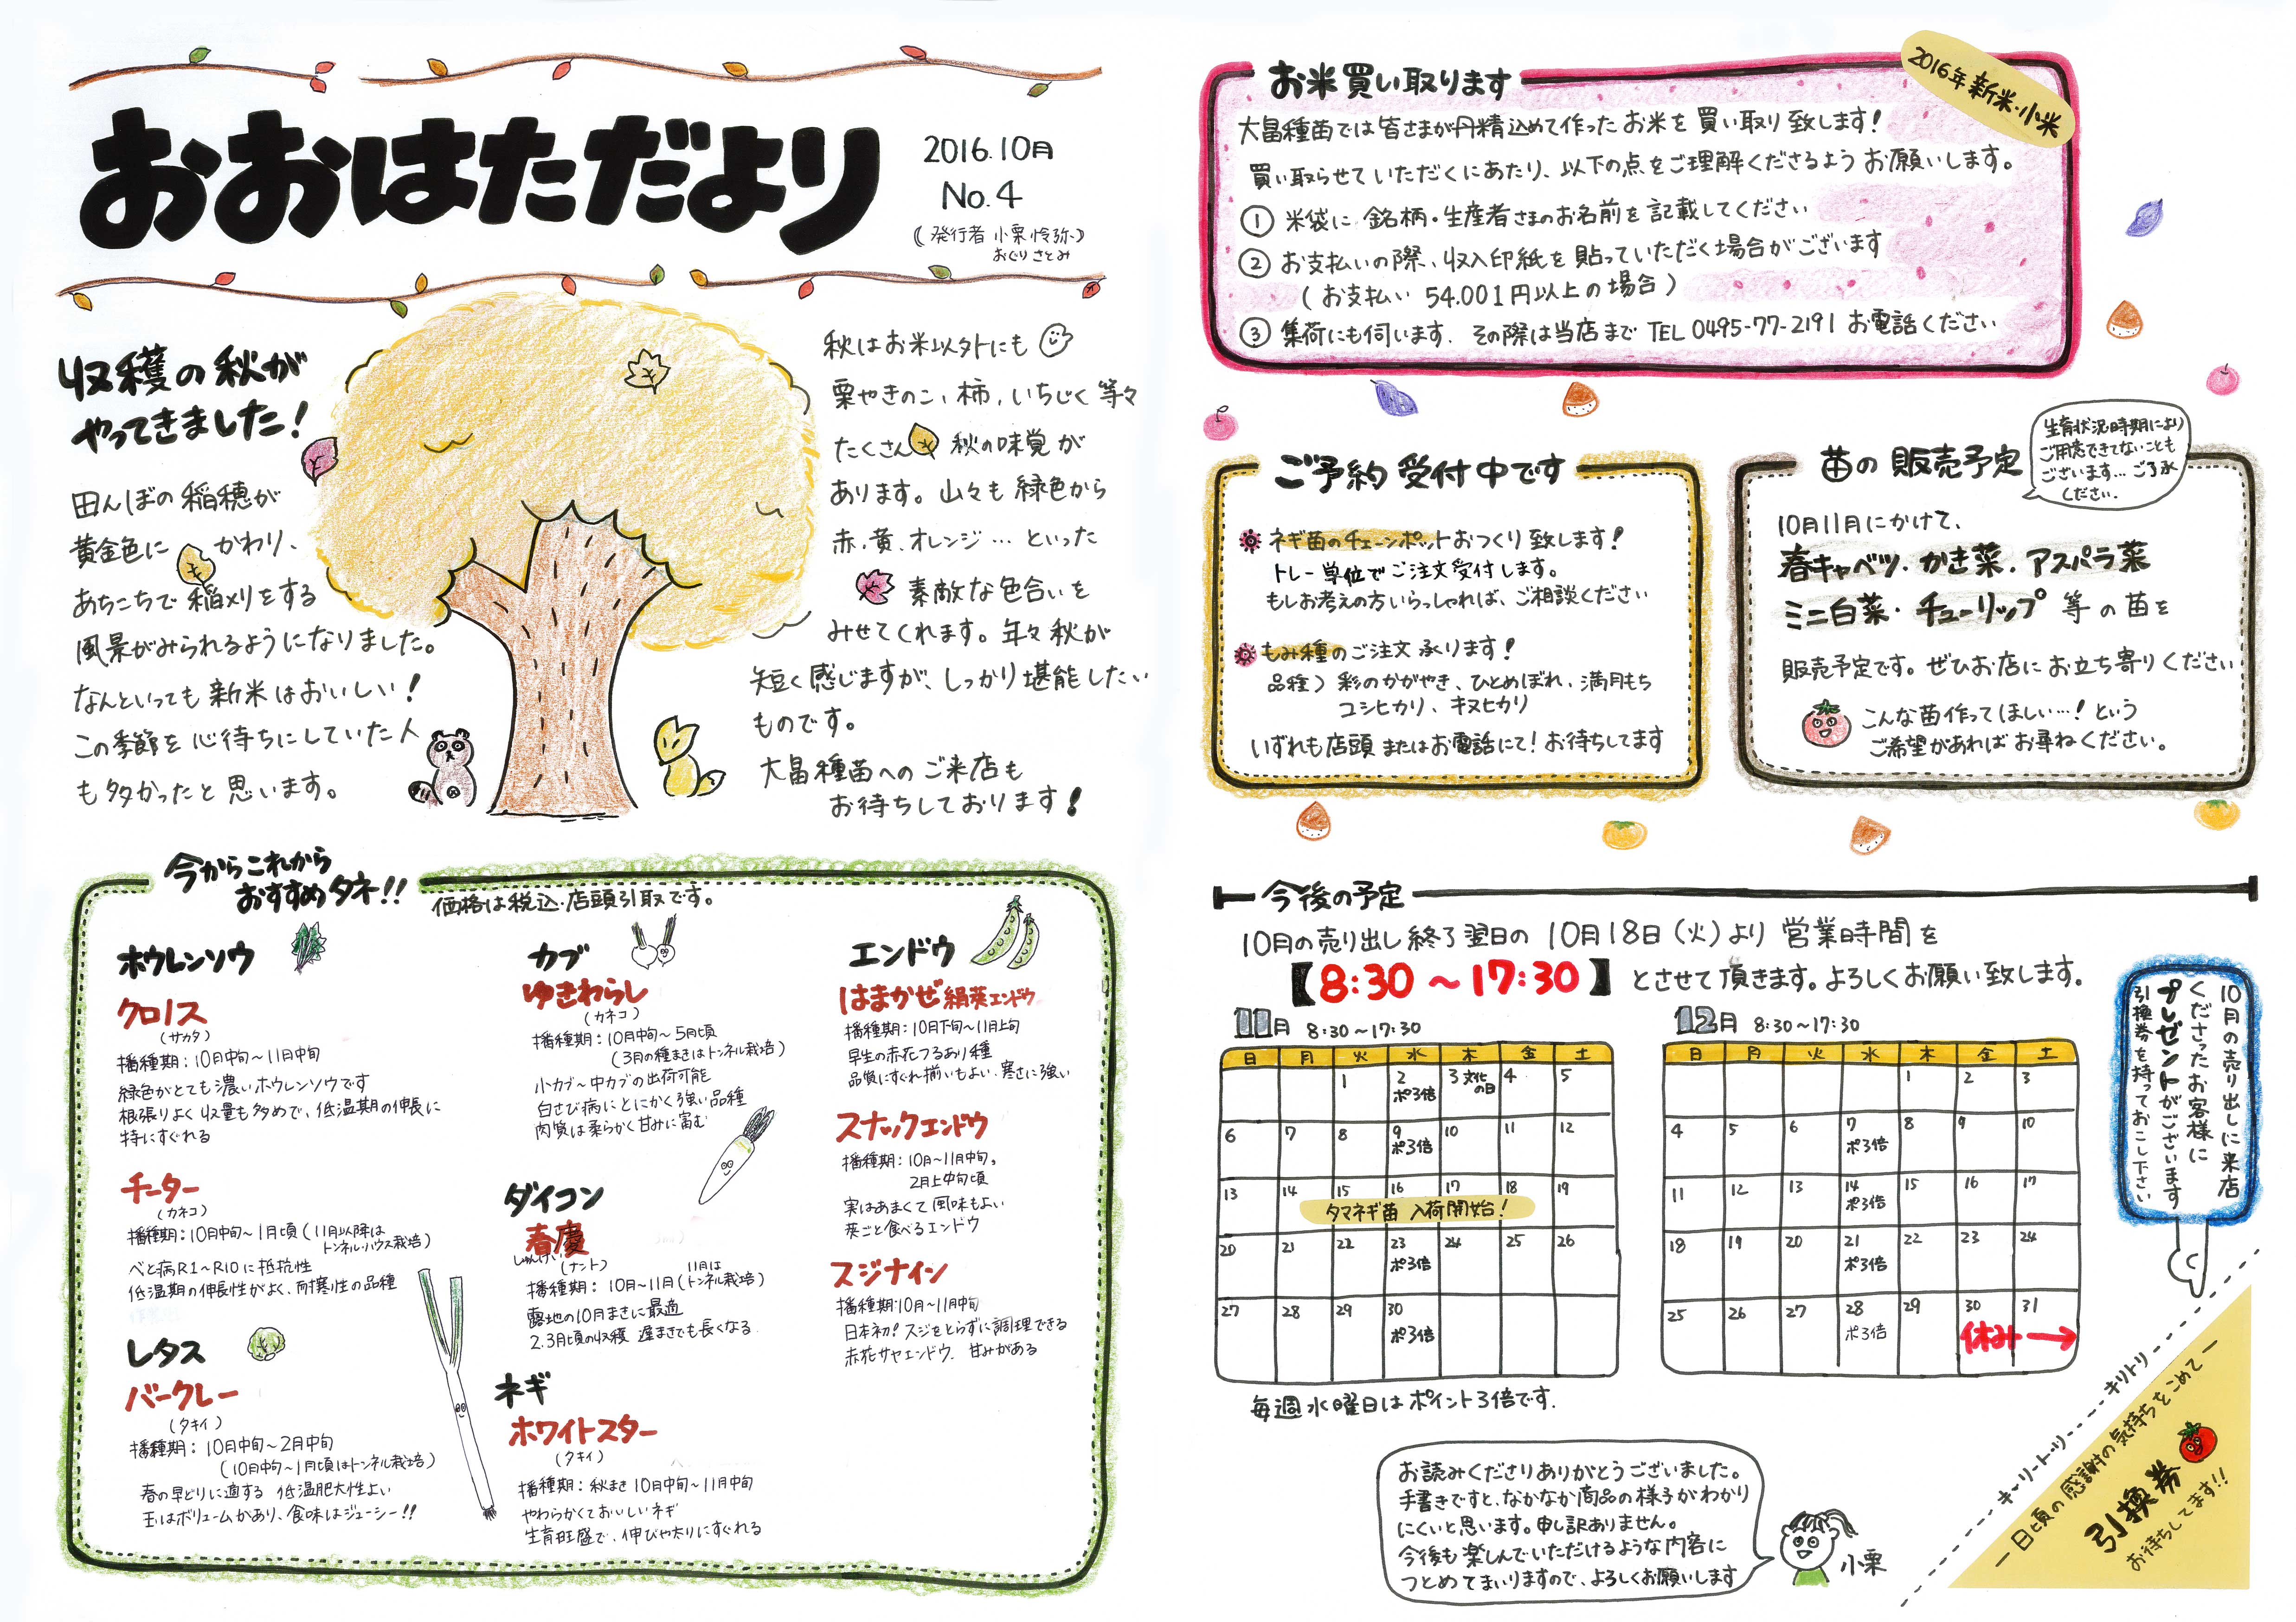 おおはただより
2016.10月
No.4
(発行者 小栗怜弥)
おぐりさとみ
収穫の秋が
やってきました！
田んぼの稲穂が
黄金色に かわり、
あちこちで稲刈りをする
風景がみられるようになりました。
なんといっても新米はおいしい！
この季節を心待ちにしていた人
も多かったと思います。
秋はお米以外にも
栗やきのこ、柿、いちじく等々
たくさん 秋の味覚が
あります。山々も緑色から
赤、黄、オレンジ…といった
素敵な色合いを
みせてくれます。年々秋が
短く感じますが、しっかり堪能したい
ものです。
大畠種苗へのご来店も
お待ちしております！
今からこれから
おすすめタネ!!
価格は税込・店頭引取です。
ホウレンソウ
クロノス
(サカタ)
播種期：10月中旬～11月中旬
緑色がとても濃いホウレンソウです
根張りよく収量も多めで、低温期の伸長に
特にすぐれる
チーター
(カネコ)
播種期：10月中旬～1月頃(11月以降は
トンネル・ハウス栽培)
べと病R1～R10に抵抗性
低温期の伸長性がよく、耐寒性の品種
レタス
バークレー
(タキイ)
播種期：10月中旬～2月中旬
(10月中旬～1月頃はトンネル栽培)
春の早どりに適する 低温肥大性よい
玉はボリュームがあり、食味はジューシー!!
カブ
ゆきわらし
(カネコ)
播種期：10月中旬～5月頃
(3月の種まきはトンネル栽培)
小カブ～中カブの出荷可能
白さび病にとにかく強い品種
肉質は柔らかく甘みに富む
ダイコン
春慶
しゅんけい
(ナント)
播種期：10月～11月(11月はトンネル栽培)
露地の10月まきに最適
2.3月頃の収穫 遅まきでも長くなる
ネギ
ホワイトスター
(タキイ)
播種期：秋まき10月中旬～11月中旬
やわらかくておいしいネギ
生育旺盛で、伸びや太りにすぐれる
エンドウ
はまかぜ絹莢エンドウ
播種期：10月下旬～11月上旬
早生の赤花つるあり種
品質にすぐれ揃いもよい、寒さに強い
スナックエンドウ
播種期：10月～11月中旬、
2月上中旬頃
実はあまくて風味もよい
莢ごと食べるエンドウ
スジナイン
播種期：10月～11月中旬
日本初！スジをとらずに調理できる
赤花サヤエンドウ、甘みがある
お米買い取ります
2016年新米・小米
大畠種苗では皆さまが丹精込めて作ったお米を買い取り致します！
買い取らせていただくにあたり、以下の点をご理解くださるようお願いします。
① 米袋に銘柄・生産者さまのお名前を記載してください
② お支払いの際、収入印紙を貼っていただく場合がございます
(お支払い 54.001円以上の場合)
③ 集荷にも伺います。その際は当店までTEL 0495-77-2191 お電話ください
ご予約受付中です
ネギ苗のチェーンポットおつくり致します！
トレー単位でご注文受付します。
もしお考えの方いらっしゃれば、ご相談ください
もみ種のご注文承ります！
品種）彩のかがやき、ひとめぼれ、満月もち
コシヒカリ、キヌヒカリ
いずれも店頭またはお電話にて！お待ちしてます
苗の販売予定
生育状況時期により
ご用意できてないことも
ございます…ご了承
ください。
10月11月にかけて、
春キャベツ・かき菜・アスパラ菜
ミニ白菜・チューリップ 等の苗を
販売予定です。ぜひお店にお立ち寄りください
こんな苗作ってほしい…！という
ご希望があればお尋ねください。
今後の予定
10月の売り出し終了翌日の10月18日(火)より営業時間を
【8:30～17:30】とさせて頂きます。よろしくお願い致します。
11月 8:30～17:30
日 月 火 水 木 金 土
1 2 3文化の日 4 5
ポ3倍
6 7 8 9 10 11 12
ポ3倍
13 14 15 16 17 18 19
タマネギ苗 入荷開始！
20 21 22 23 24 25 26
ポ3倍
27 28 29 30
ポ3倍
毎週水曜日はポイント3倍です.
12月 8:30～17:30
日 月 火 水 木 金 土
1 2 3
4 5 6 7 8 9 10
ポ3倍
11 12 13 14 15 16 17
ポ3倍
18 19 20 21 22 23 24
ポ3倍
25 26 27 28 29 30 31
ポ3倍 休み→
10月の売り出しに来店
くださったお客様に
プレゼントがございます
引換券を持っておこし下さい
キーリートーリー
キリトリ
―日頃の感謝の気持ちをこめて―
引換券
お待ちしてます!!
お読みくださりありがとうございました。
手書きですと、なかなか商品の様子がわかり
にくいと思います。申し訳ありません。
今後も楽しんでいただけるような内容に
つとめてまいりますので、よろしくお願いします
小栗